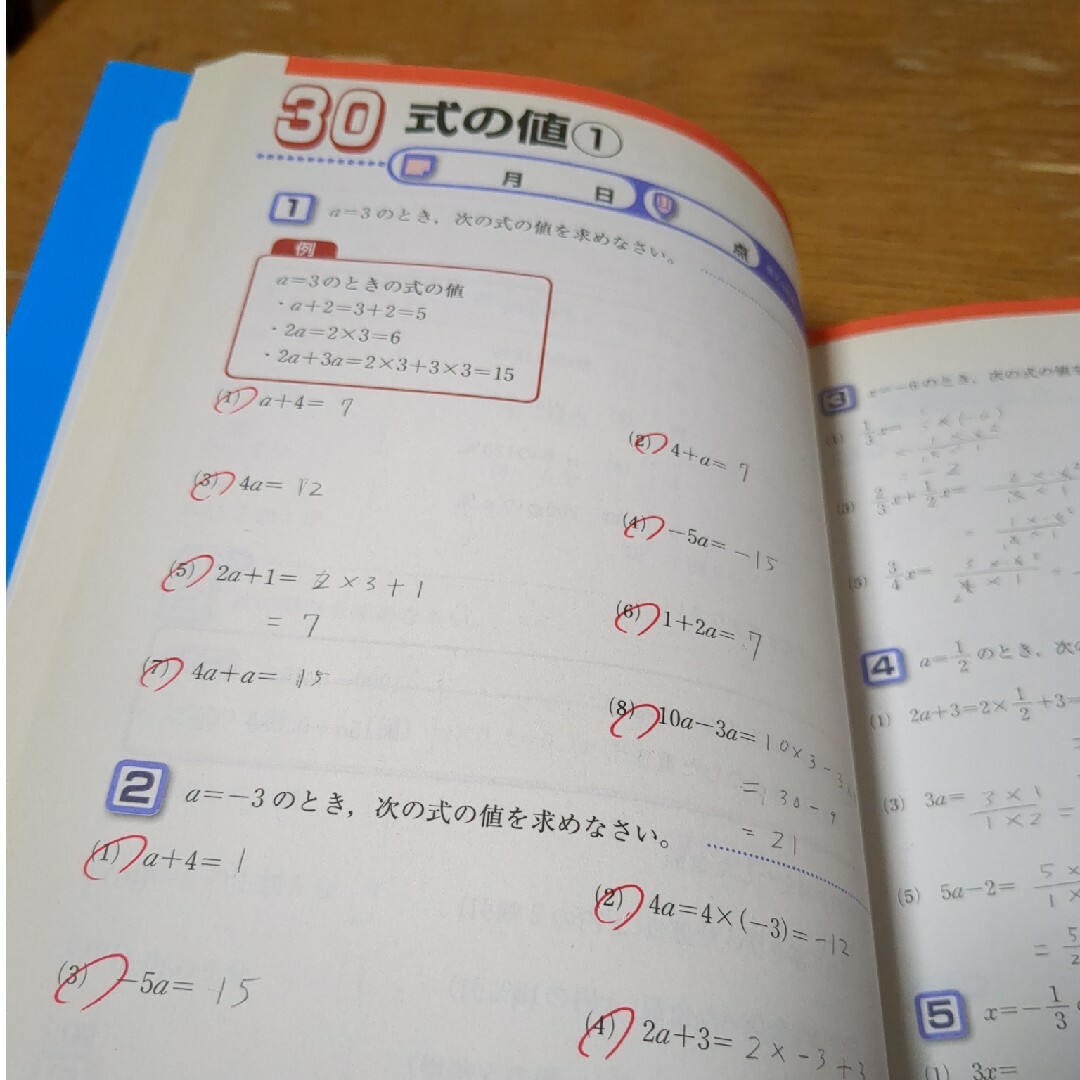 30 式の値①
月 日
点
1 a=3のとき，次の式の値を求めなさい。
例
a=3のときの式の値
・a+2=3+2=5
・2a=2×3=6
・2a+3a=2×3+3×3=15
(1) a+4= 7
(2) 4+a= 7
(3) 4a= 12
(4) −5a= −15
(5) 2a+1= 2×3+1
= 7
(6) 1+2a= 7
(7) 4a+a= 15
(8) 10a−3a= 10×3−3×
= 30−9
= 21
2 a=−3のとき，次の式の値を求めなさい。
(1) a+4= 1
(2) 4a=4×(−3)= −12
(3) −5a= 15
(4) 2a+3= 2×−3+3
3 x=−6のとき，次の式の値を
(1) 1/3 x=
= −2
(3) 2/3 x+1/2 x=
(5) 3/4 x=
4 a=1/2 のとき，次の
(1) 2a+3=2×1/2+3=
(3) 3a= 3×1/1×2 =
(5) 5a−2= 5×
= 5/2
5 x=−1/3
(1) 3x=